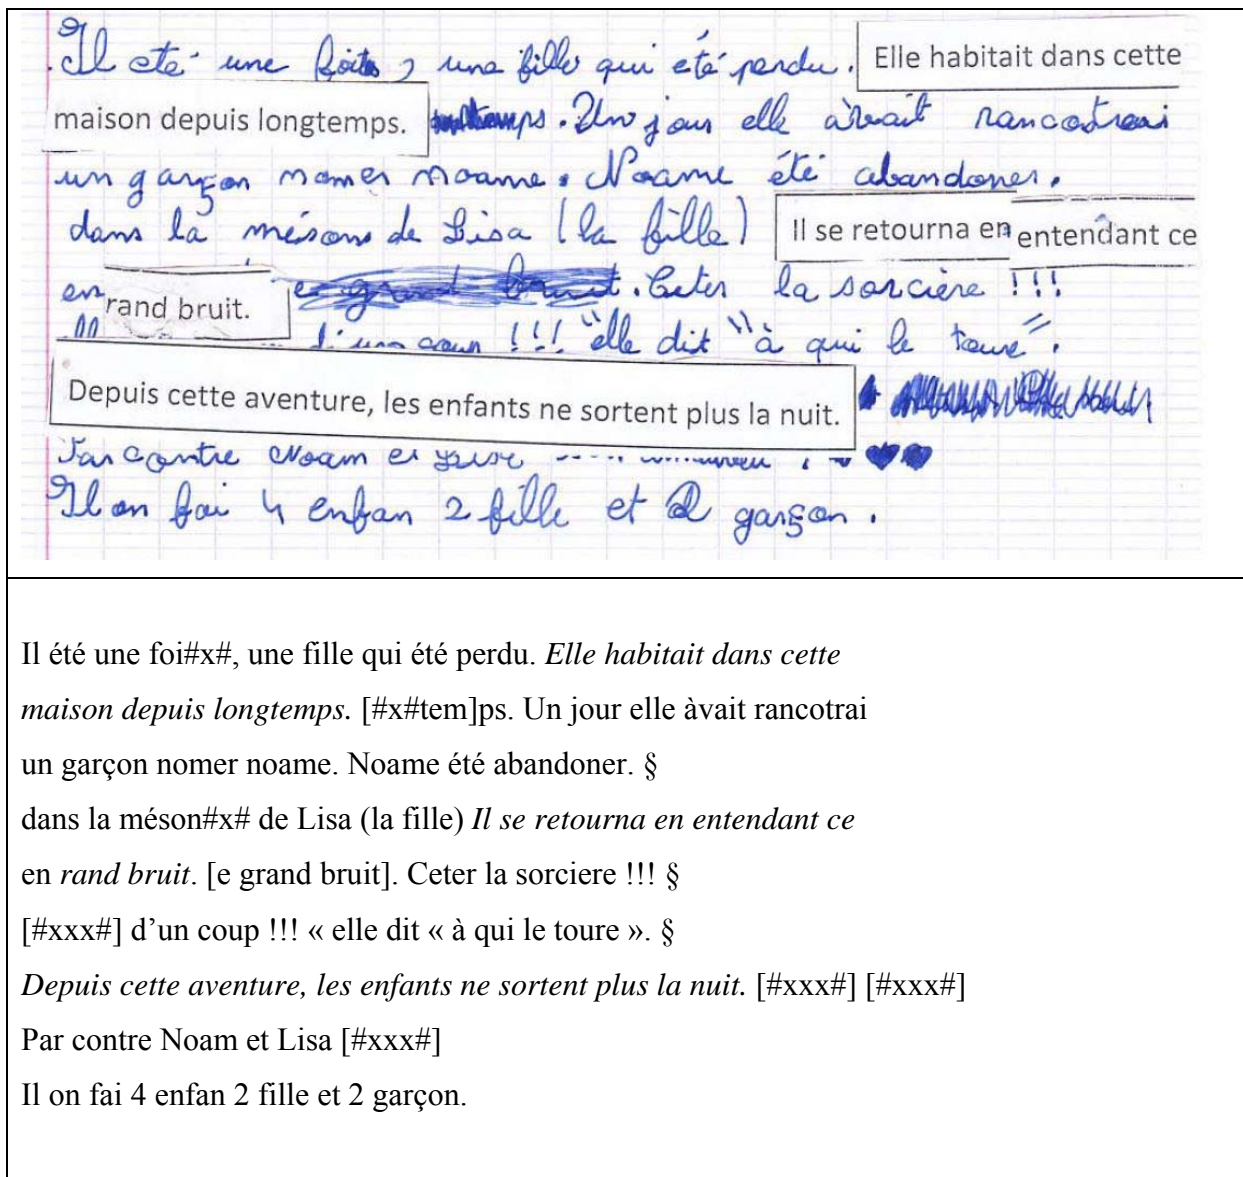 Il eté une foits, une fille qui eté perdu. Elle habitait dans cette
maison depuis longtemps. temps. Un jour elle àvait rancotrai
un garçon nomer noame. Noame été abandoner.
dans la mésons de Lisa (la fille) Il se retourna en entendant ce
en rand bruit. e grand bruit. Ceter la sorcière !!!
d'un coup !!! "elle dit "à qui le toure".
Depuis cette aventure, les enfants ne sortent plus la nuit.
Par contre Noam et Lisa
Il on fai 4 enfan 2 fille et 2 garçon.
Il été une foi#x#, une fille qui été perdu. Elle habitait dans cette
maison depuis longtemps. [#x#tem]ps. Un jour elle àvait rancotrai
un garçon nomer noame. Noame été abandoner. §
dans la méson#x# de Lisa (la fille) Il se retourna en entendant ce
en rand bruit. [e grand bruit]. Ceter la sorciere !!! §
[#xxx#] d’un coup !!! « elle dit « à qui le toure ». §
Depuis cette aventure, les enfants ne sortent plus la nuit. [#xxx#] [#xxx#]
Par contre Noam et Lisa [#xxx#]
Il on fai 4 enfan 2 fille et 2 garçon.